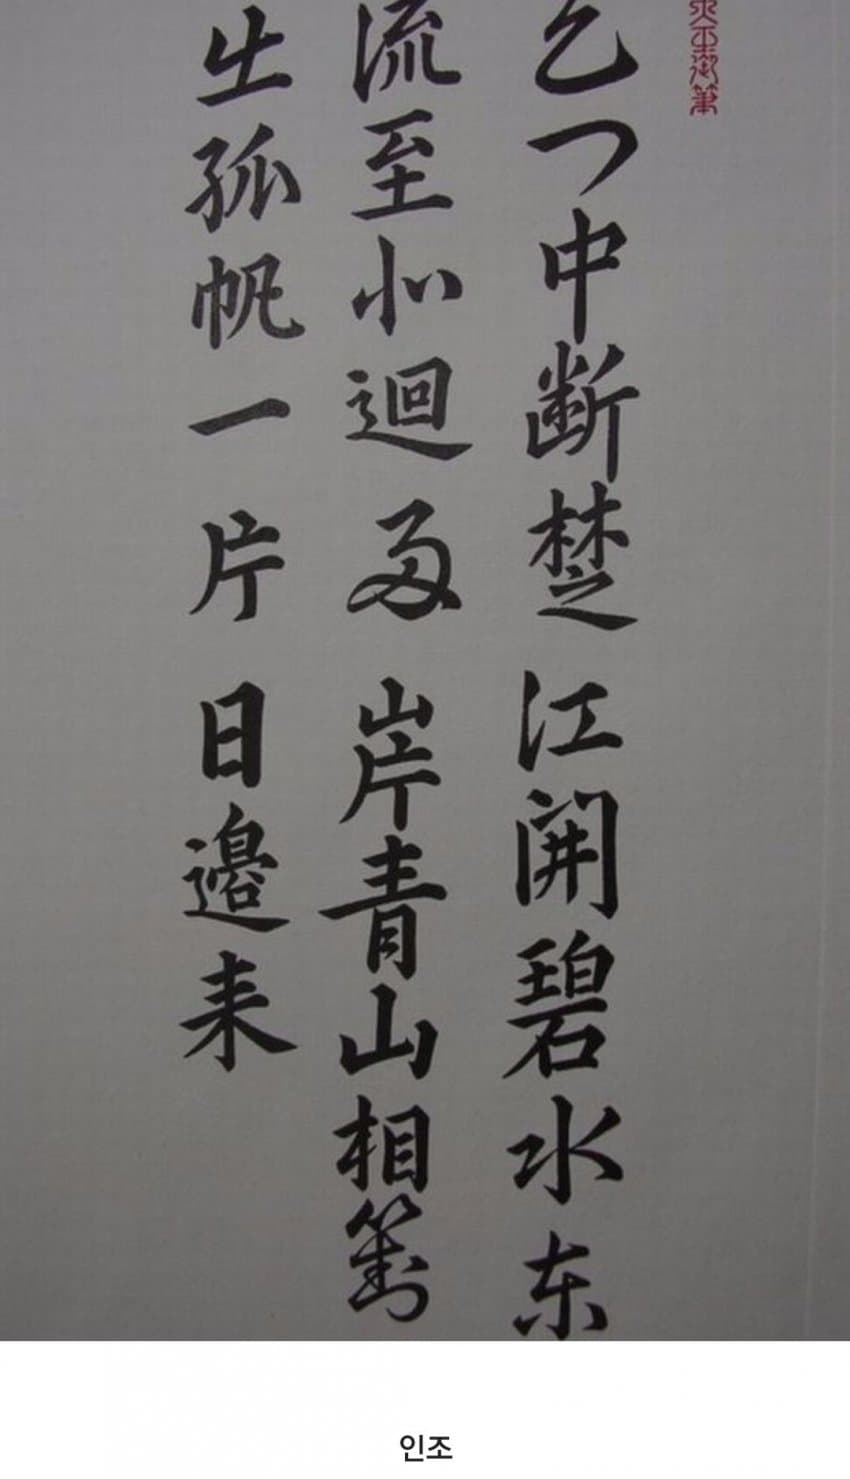 天门中断楚江開碧水东
流至此迴两岸青山相對
出孤帆一片日邊来
인조